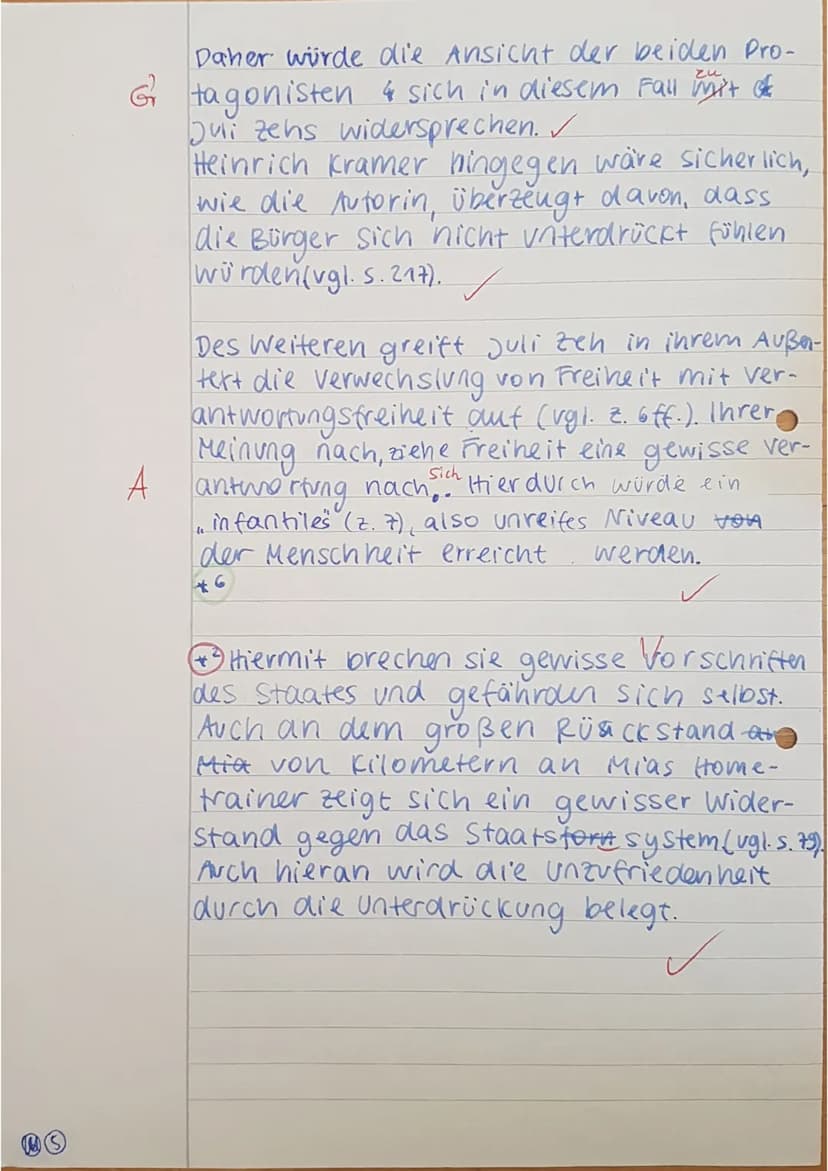 Daher würde die Ansicht der beiden Pro-
G? tagonisten sich in diesem Fall mit zu
Juli Zehs widersprechen. ✓
Heinrich Kramer hingegen wäre sicherlich,
wie die Autorin, überzeugt davon, dass
die Bürger sich nicht unterdrückt fühlen
würden(vgl. S. 217). ✓
Des Weiteren greift Juli Zeh in ihrem Außen-
text die Verwechslung von Freiheit mit Ver-
antwortungsfreiheit auf (vgl. Z. 6ff.). Ihrer
Meinung nach, ziehe Freiheit eine gewisse Ver-
A antwortung nach sich. Hierdurch würde ein
„infantiles" (Z. 7), also unreifes Niveau von
der Menschheit erreicht werden.
*6 ✓
*2 Hiermit brechen sie gewisse Vorschriften
des Staates und gefährden sich selbst.
Auch an dem großen Rückstand an
Mia von Kilometern an Mias Home-
trainer zeigt sich ein gewisser Wider-
stand gegen das Staatsform system(vgl. S. 79).
Auch hieran wird die Unzufriedenheit
durch die Unterdrückung belegt.
✓
5